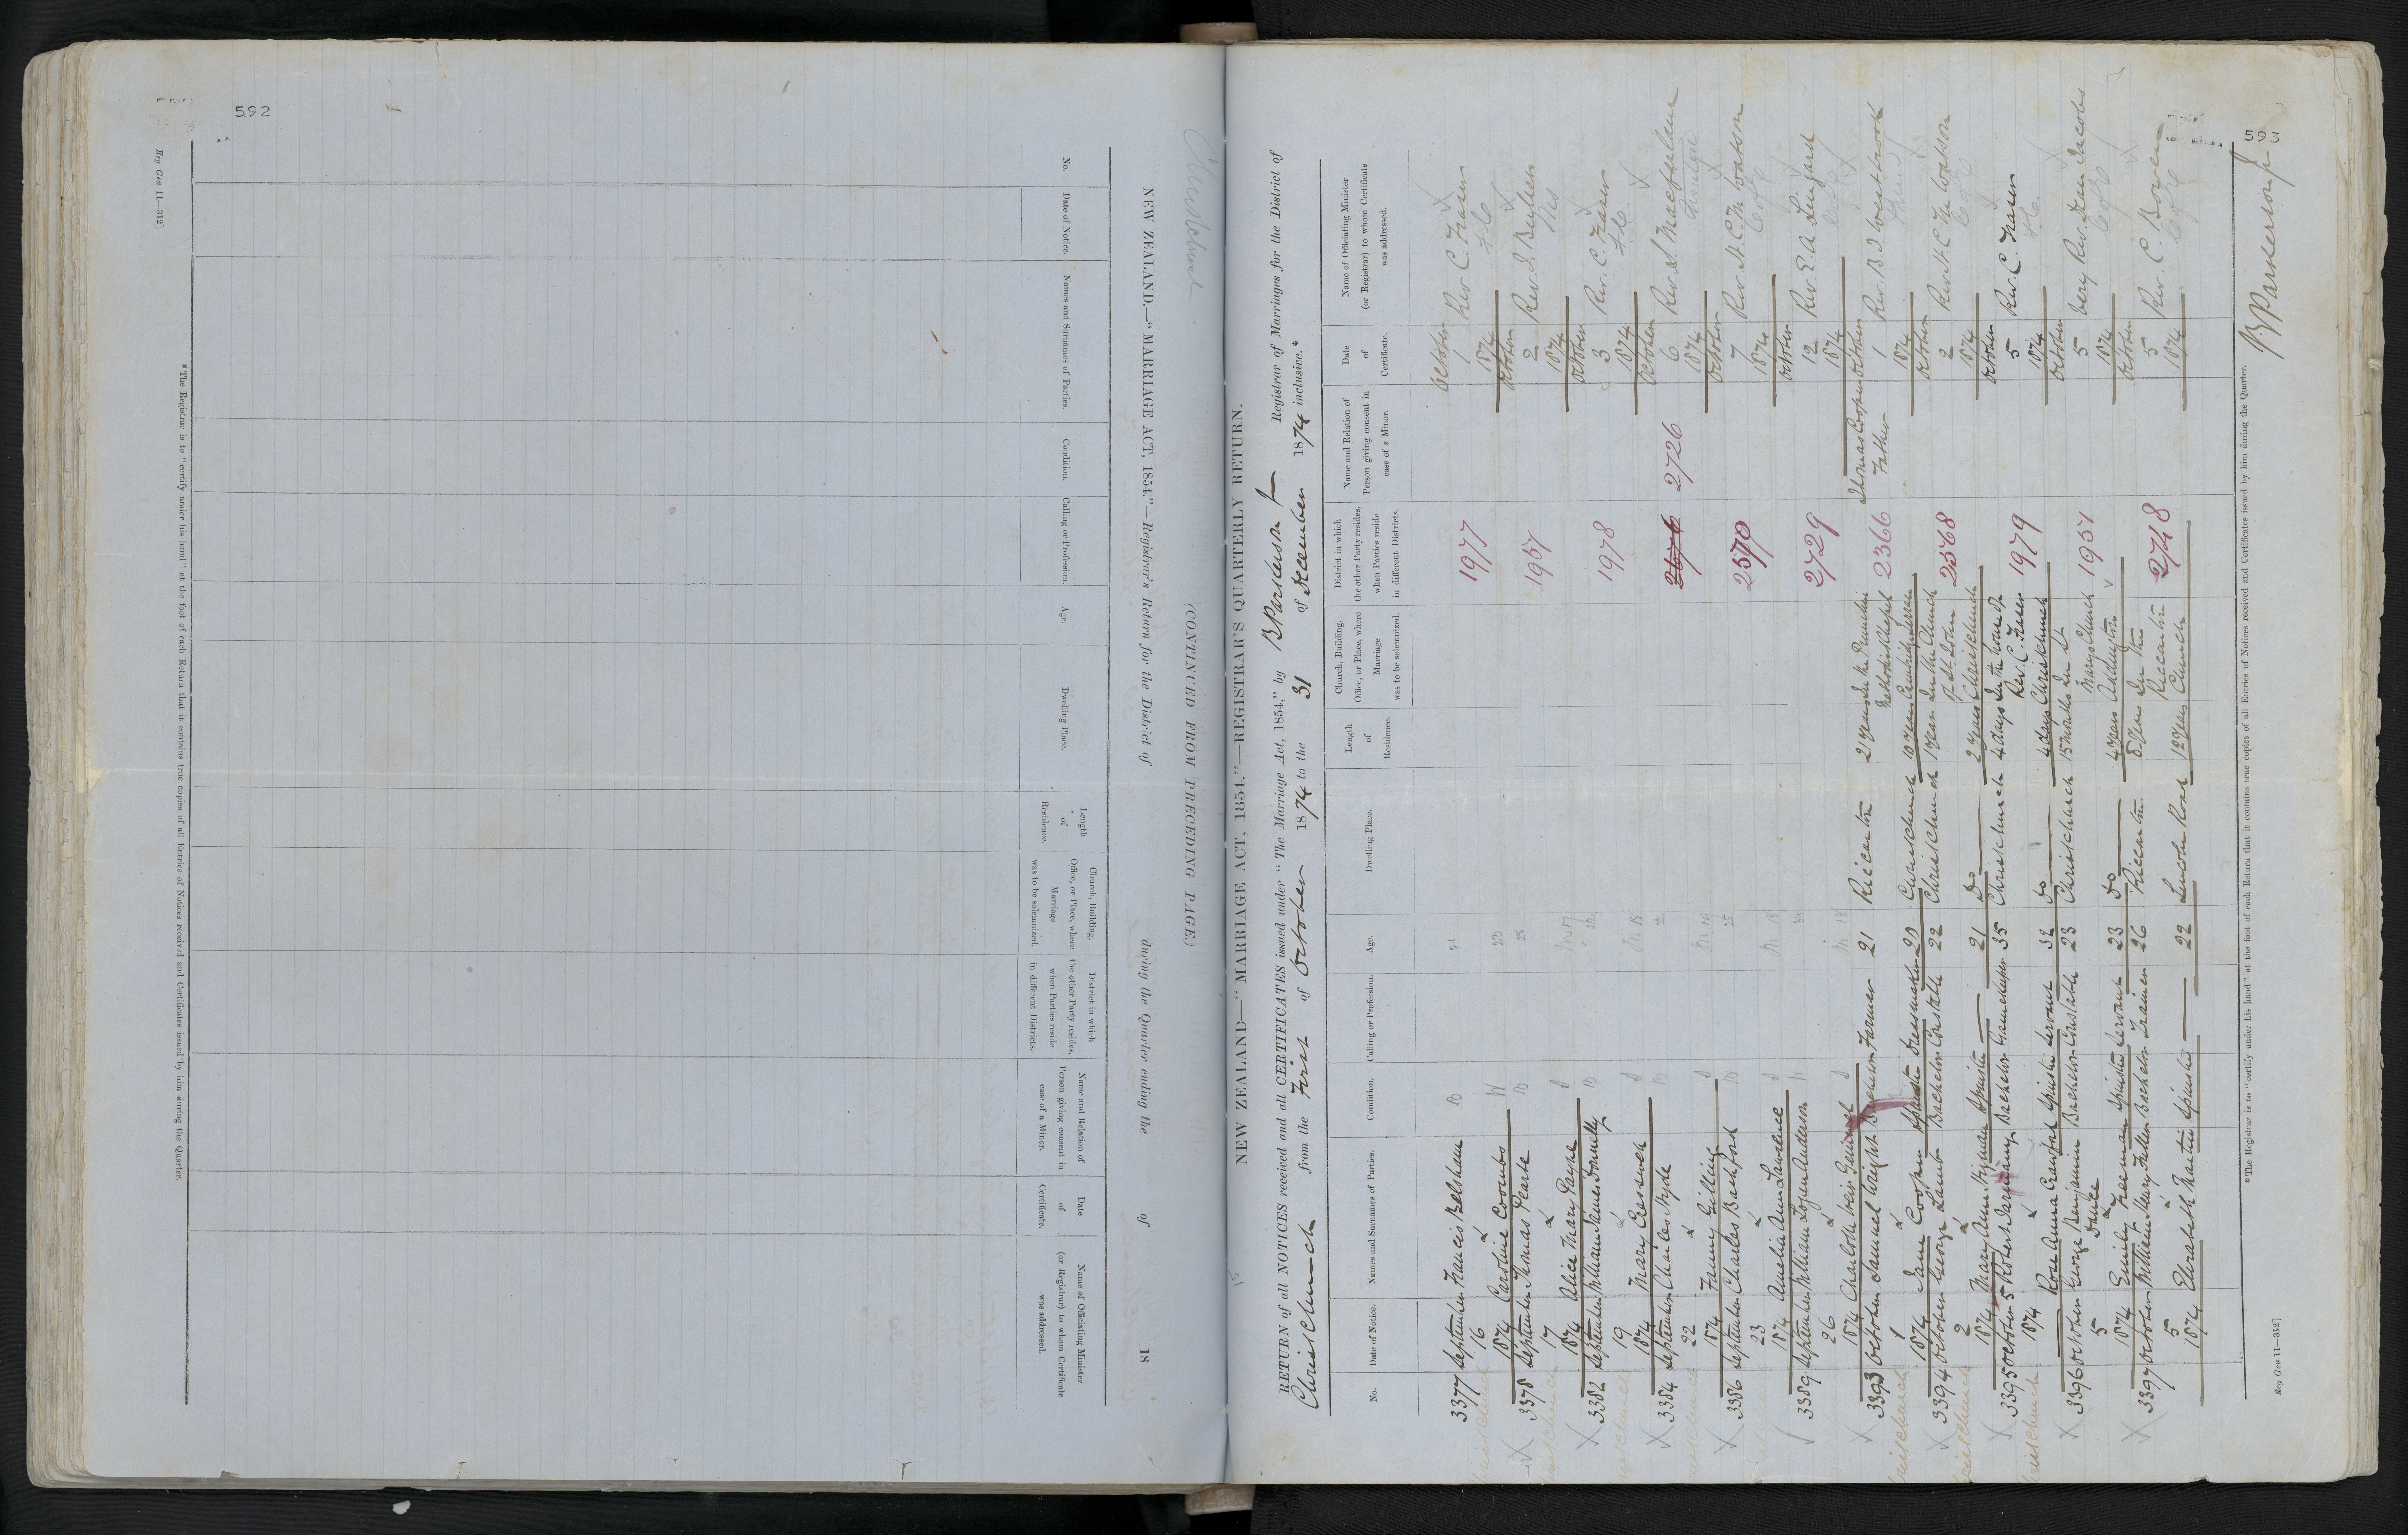 592
Reg Gen 11—312]
NEW ZEALAND.—"MARRIAGE ACT, 1854."—Registrar's Return for the District of during the Quarter ending the of 18
(CONTINUED FROM PRECEDING PAGE.)
Christchurch
No.
Date of Notice.
Names and Surnames of Parties.
Condition.
Calling or Profession.
Age.
Dwelling Place.
Length of Residence.
Church, Building, Office, or Place, where Marriage was to be solemnized.
District in which the other Party resides, when Parties reside in different Districts.
Name and Relation of Person giving consent in case of a Minor.
Date of Certificate.
Name of Officiating Minister (or Registrar) to whom Certificate was addressed.
*The Registrar is to "certify under his hand" at the foot of each Return that it contains true copies of all Entries of Notices received and Certificates issued by him during the Quarter.
593
NEW ZEALAND—"MARRIAGE ACT, 1854."—REGISTRAR'S QUARTERLY RETURN.
RETURN of all NOTICES received and all CERTIFICATES issued under "The Marriage Act, 1854," by B Parkerson Jr Registrar of Marriages for the District of
Christchurch from the First of October 1874 to the 31 of December 1874 inclusive.*
No.
Date of Notice.
Names and Surnames of Parties.
Condition.
Calling or Profession.
Age.
Dwelling Place.
Length of Residence.
Church, Building, Office, or Place, where Marriage was to be solemnized.
District in which the other Party resides, when Parties reside in different Districts.
Name and Relation of Person giving consent in case of a Minor.
Date of Certificate.
Name of Officiating Minister (or Registrar) to whom Certificate was addressed.
3377 September 16 1874 Francis Belsham B 21 1977 October 1 1874 Rev C. Fraser
Caroline Coombs W
3378 September 17 1874 Thomas Pearse B 1957 October 2 1874 Rev. J. Buller
Alice Mary Payne S
3382 September 19 1874 William James Donnelly B 1978 October 3 1874 Rev. C. Fraser
Mary Cresswell S
3384 September 22 1874 Charles Hyde B 2726 October 6 1874 Rev. S. Macfarlane
Fanny Gilling S
3386 September 23 1874 Charles Bashford B 2570 October 7 1874 Rev. H. C. M. Watson
Amelia Ann Lawrence S
3389 September 26 1874 William Logan Anderson 2729 October 12 1874 Rev. E. A. Lingard
Charlotte Weir Gemmel S
3393 October 1 1874 Samuel Wright Bachelor Farmer 21 Riccarton 21 years In the Primitive Methodist Chapel Cambridge Terrace 2366 Thomas Cooper Father October 1 1874 Rev. B. J. Westbrook
Jane Cooper Spinster Dressmaker 20 Christchurch 10 years
3394 October 2 1874 George Lamb Bachelor Constable 22 Christchurch 1 year In the Church of St. John Christchurch 2568 October 2 1874 Rev. H. C. M. Watson
Mary Ann Kijnan Spinster — 21 Do 2 years
3395 October 5 1874 Robert Jardain Bachelor Gamekeeper 35 Christchurch 4 days In the house of Rev. C. Fraser Christchurch 1979 October 5 1874 Rev. C. Fraser
Rose Anna Crawford Spinster Servant 32 Do 4 days
3396 October 5 1874 George Benjamin Bachelor Constable 23 Christchurch 15 months In St. Marys Church Addington 1951 October 5 1874 Very Rev. Dean Jacobs
Emily Freeman Spinster Servant 23 Do 4 years
3397 October 5 1874 William Henry Fuller Bachelor Trainer 26 Riccarton 8 years In the Riccarton Church 2718 October 5 1874 Rev. C. Bowen
Elizabeth Martin Spinster — 22 Lincoln Road 12 years
*The Registrar is to "certify under his hand" at the foot of each Return that it contains true copies of all Entries of Notices received and Certificates issued by him during the Quarter.
B Parkerson Jr
Reg Gen 11—312]